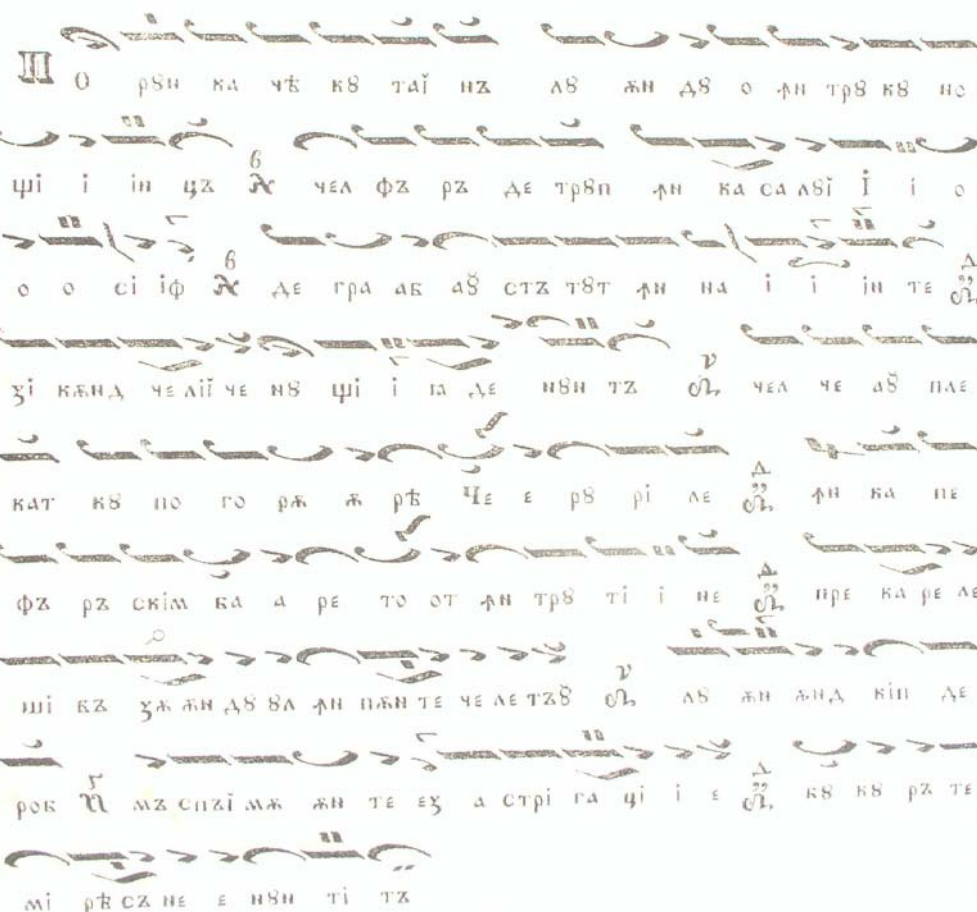 ПО рȣн ка чѣ кȣ таĭ нъ лȣ ѫн дȣ о ꙟн трȣ кȣ но
щі і ін цъ чел фъ ръ де трȣп ꙟн ка са лȣĭ І і о
о о сі іф де гра аб аȣ̆ стъ тȣт ꙟн на і і ін те
ꙁі кѫнд че лії че нȣ щі і ꙗ де нȣн тъ чел че аȣ̆ пле
кат кȣ по го рѫ ѫ рѣ Че е рȣ рі ле ꙟн ка пе
фъ ръ скім ба а ре то от ꙟн трȣ ті і не пре ка ре ле
ші въ ꙁѫ ѫн дȣ ȣл ꙟн пѫн те че ле тъȣ̆ лȣ ѫн ѫнд кіп де
роб мъ спъі мѫ ѫн те еꙁ а стрі га ці і е кȣ кȣ ръ те
мі рѣ съ не е нȣн ті тъ